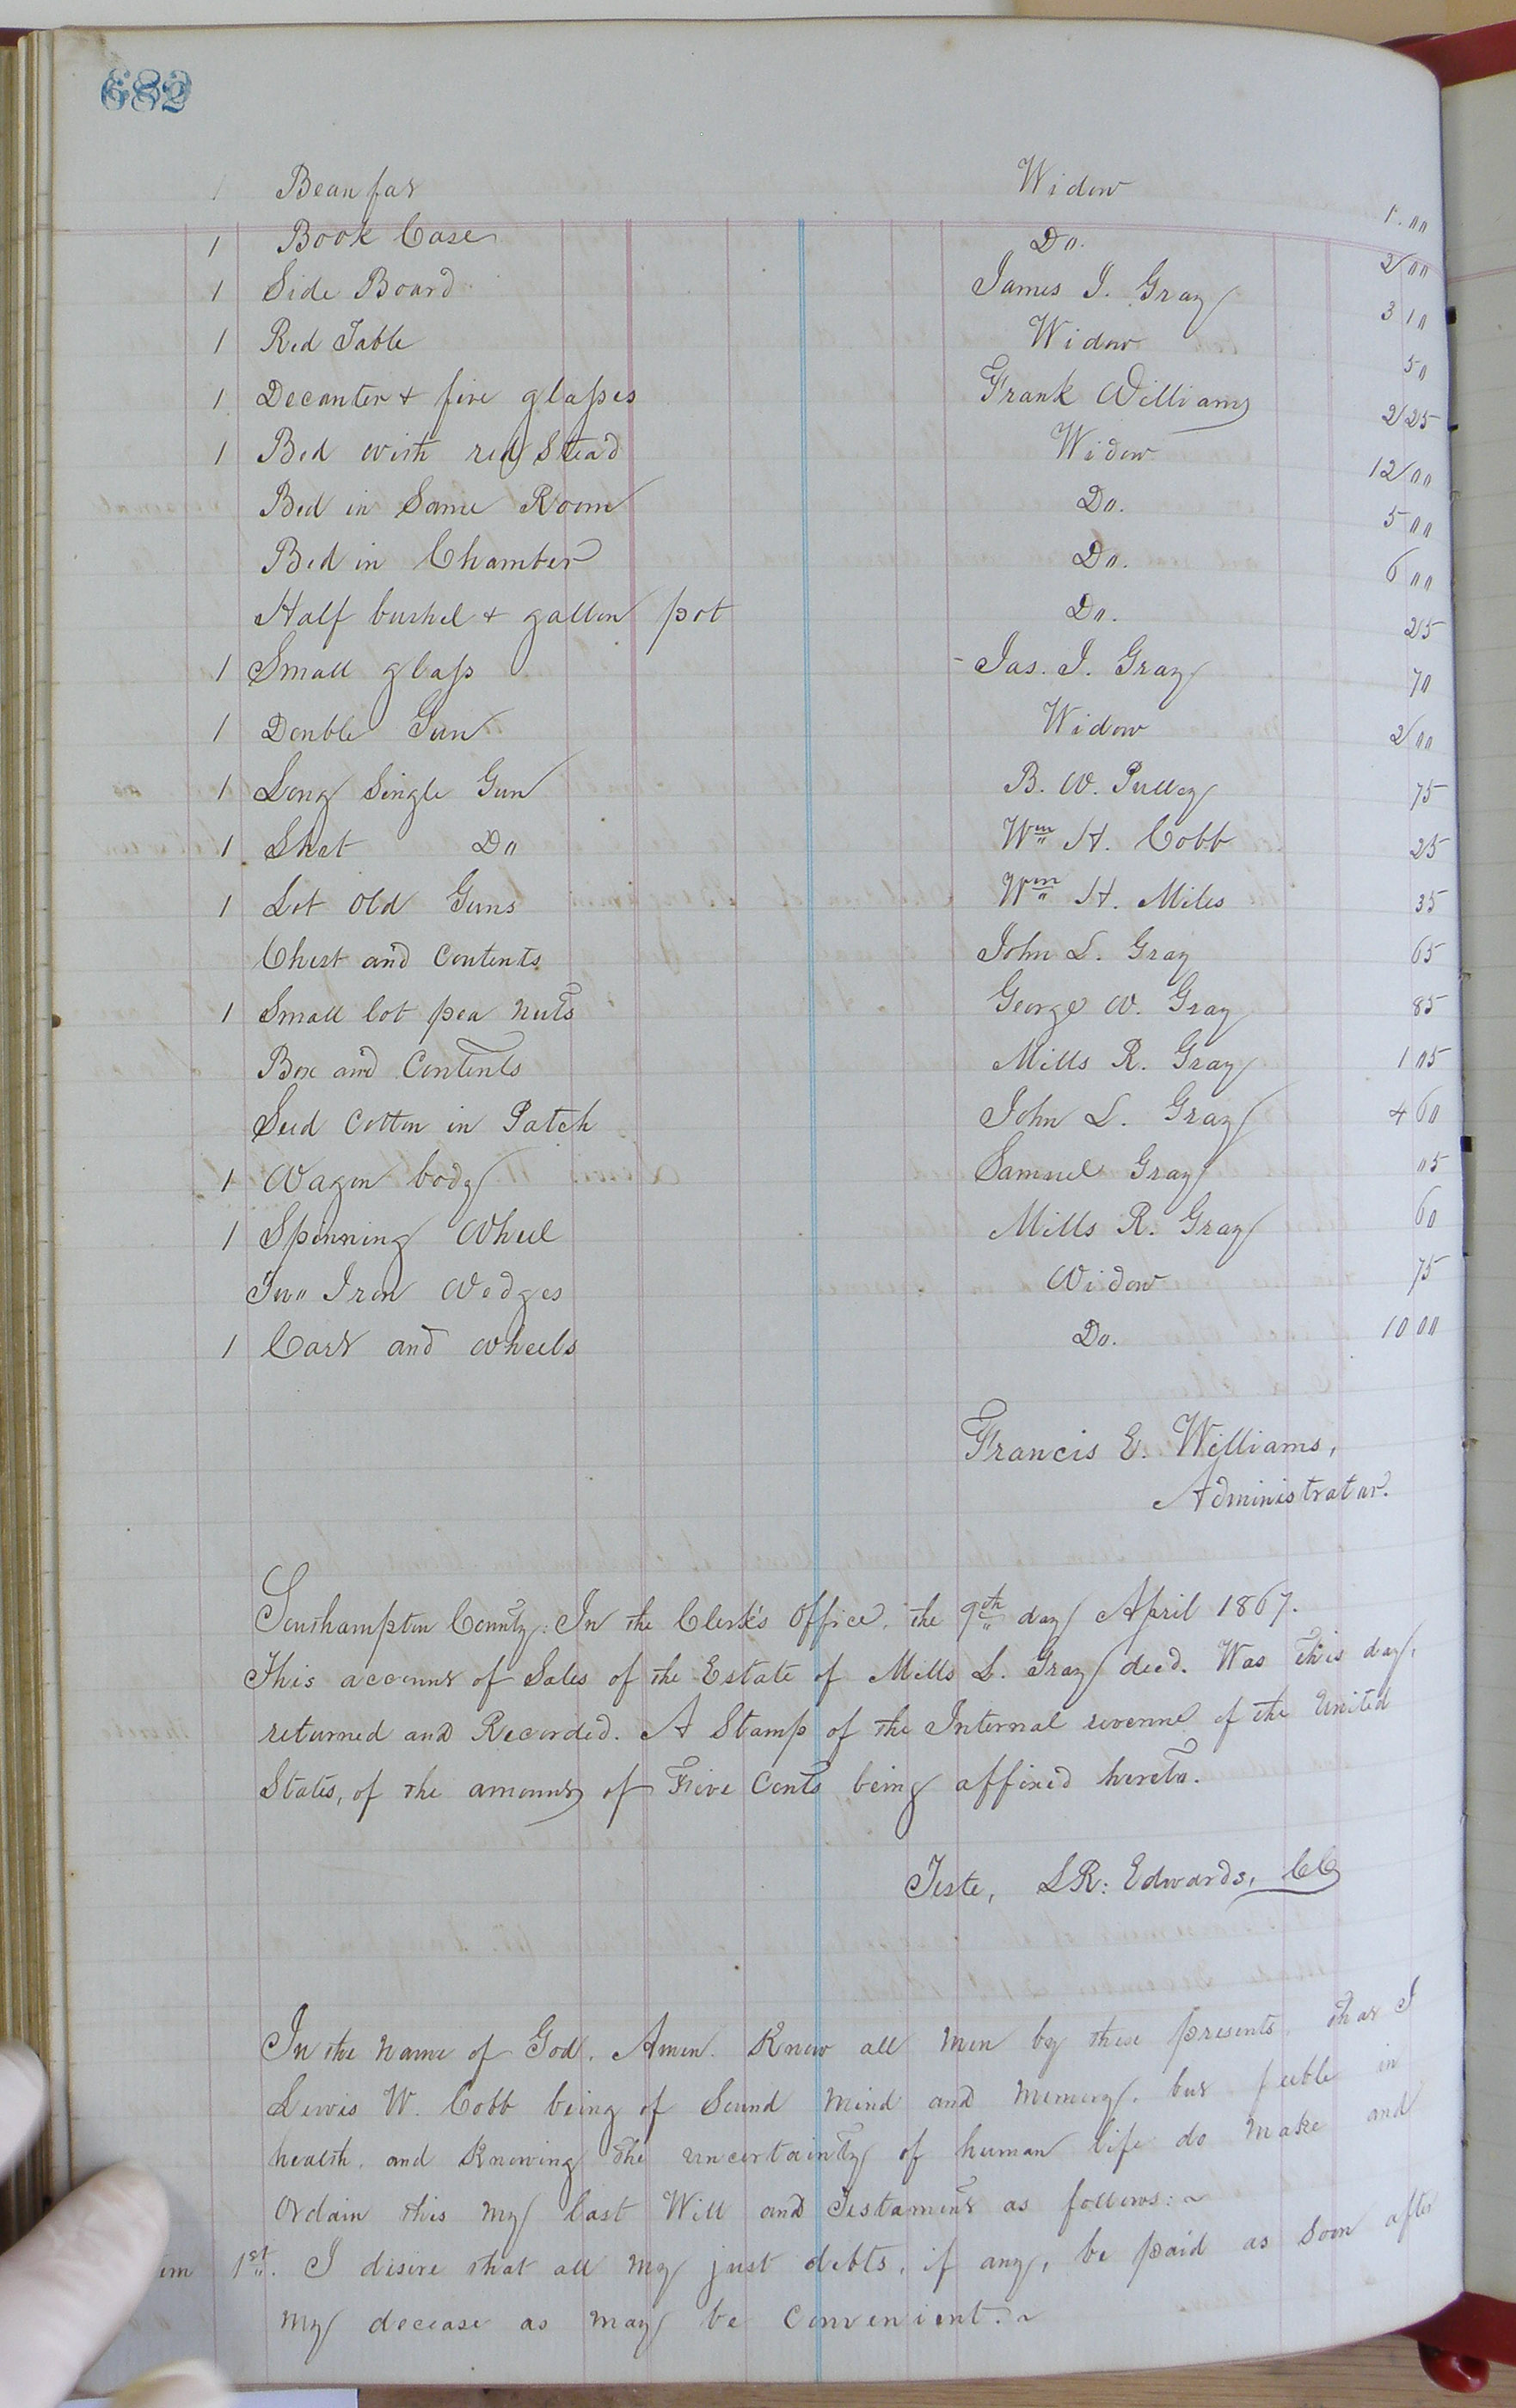 682
1 Beaufat Widow 1.00
1 Book Case Do. 2 00
1 Side Board James J. Gray 3 10
1 Red Table Widow 50
1 Decanter + five glasses Frank Williams 2 25
1 Bed with red Stead Widow 12 00
Bed in Same Room Do. 5 00
Bed in Chamber Do. 6 00
Half bushel + gallon pot Do. 25
1 Small glass - Jas. J. Gray 70
1 Double Gun Widow 2 00
1 Long Single Gun B. W. Pulley 75
1 Shot Do Wm H. Cobb 25
1 Lot old Guns Wm H. Miles 35
Chest and Contents John L. Gray 65
1 Small lot pea nuts George W. Gray 85
Box and Contents Mills R. Gray 1 05
Seed Cotton in Patch John L. Gray 4 60
1 Wagon body Samuel Gray 05
1 Spinning Wheel Mills R. Gray 60
Two Iron Wedges Widow 75
1 Cart and wheels Do. 10 00
Francis E. Williams,
Administrator.
Southampton County: In the Clerk's Office, the 9th day April 1867.
This account of Sales of the Estate of Mills L. Gray decd. Was this day,
returned and Recorded. A Stamp of the Internal revenue of the United
States, of the amount of Five Cents being affixed hereto.
Teste, LR: Edwards, CC
In the Name of God, Amen. Know all Men by these presents, that I
Lewis W. Cobb being of Sound Mind and Memory, but feeble in
health, and Knowing the uncertainty of human life do Make and
Ordain this my last Will and Testament as follows: ~
1st. I desire that all my just debts, if any, be paid as Soon after
my decease as may be Convenient. ~